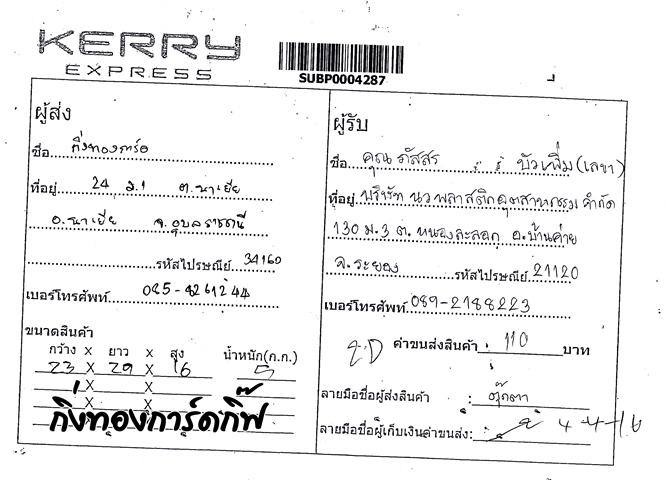 KERRY
EXPRESS
SUBP0004287
ผู้ส่ง
ชื่อ กิ่งทองการ์ด
ที่อยู่ 24 ม.1 ต.นาเยีย
อ.นาเยีย จ.อุบลราชธานี
รหัสไปรษณีย์ 34160
เบอร์โทรศัพท์ 085-8261244
ขนาดสินค้า
กว้าง X ยาว X สูง น้ำหนัก(ก.ก.)
23 X 29 X 16 5
X X
X X
X X
กิ่งทองการ์ดกิ๊ฟ
ผู้รับ
ชื่อ คุณ ภัสสร บัวเผื่อม (เลขา)
ที่อยู่ บริษัท นวพลาสติกอุตสาหกรรม จำกัด
130 ม.3 ต.หนองละลอก อ.บ้านค่าย
จ.ระยอง รหัสไปรษณีย์ 21120
เบอร์โทรศัพท์ 089-2188223
ค่าขนส่งสินค้า 110 บาท
ลายมือชื่อผู้ส่งสินค้า : ตุ๊กตา
ลายมือชื่อผู้เก็บเงินค่าขนส่ง: 4-4-16